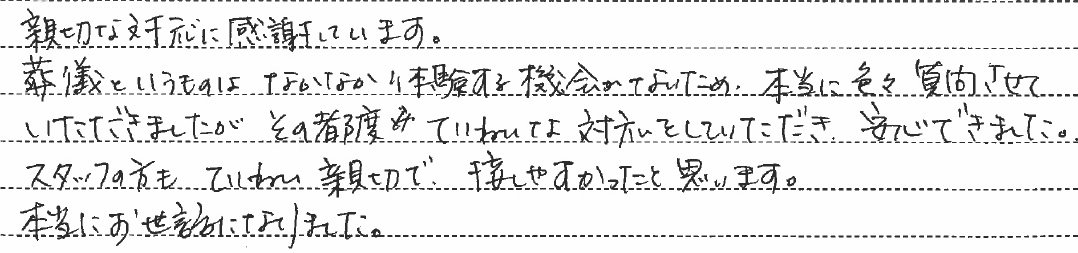 親切な対応に感謝しています。
葬儀というものは なかなか体験する機会がないため、本当に色々質問させて
いただきましたが その都度 ていねいな 対応をしていただき、安心できました。
スタッフの方も ていねい 親切で、接しやすかったこと思います。
本当にお世話になりました。